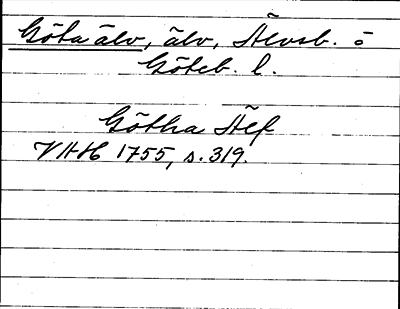 Göta älv, älv, Älvsb. o
Göteb. l.
Götha Älf
VHH 1755, s. 319.